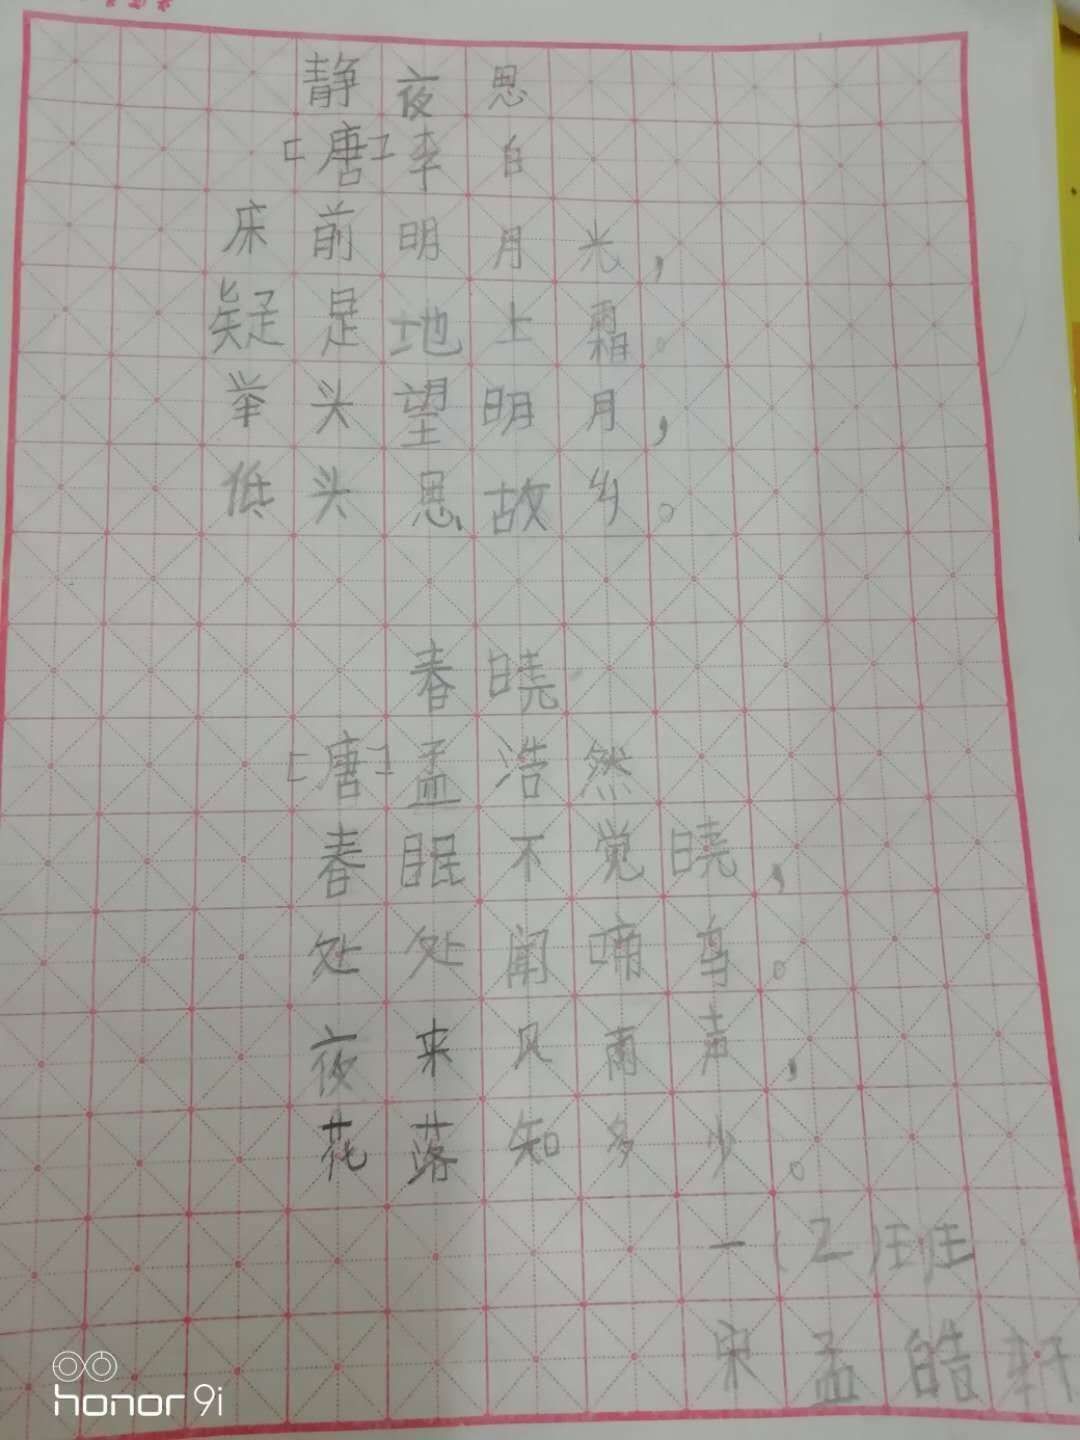 静夜思
[唐]李白
床前明月光，
疑是地上霜。
举头望明月，
低头思故乡。
春晓
[唐]孟浩然
春眠不觉晓，
处处闻啼鸟。
夜来风雨声，
花落知多少。
一(2)班
宋孟皓轩
honor 9i